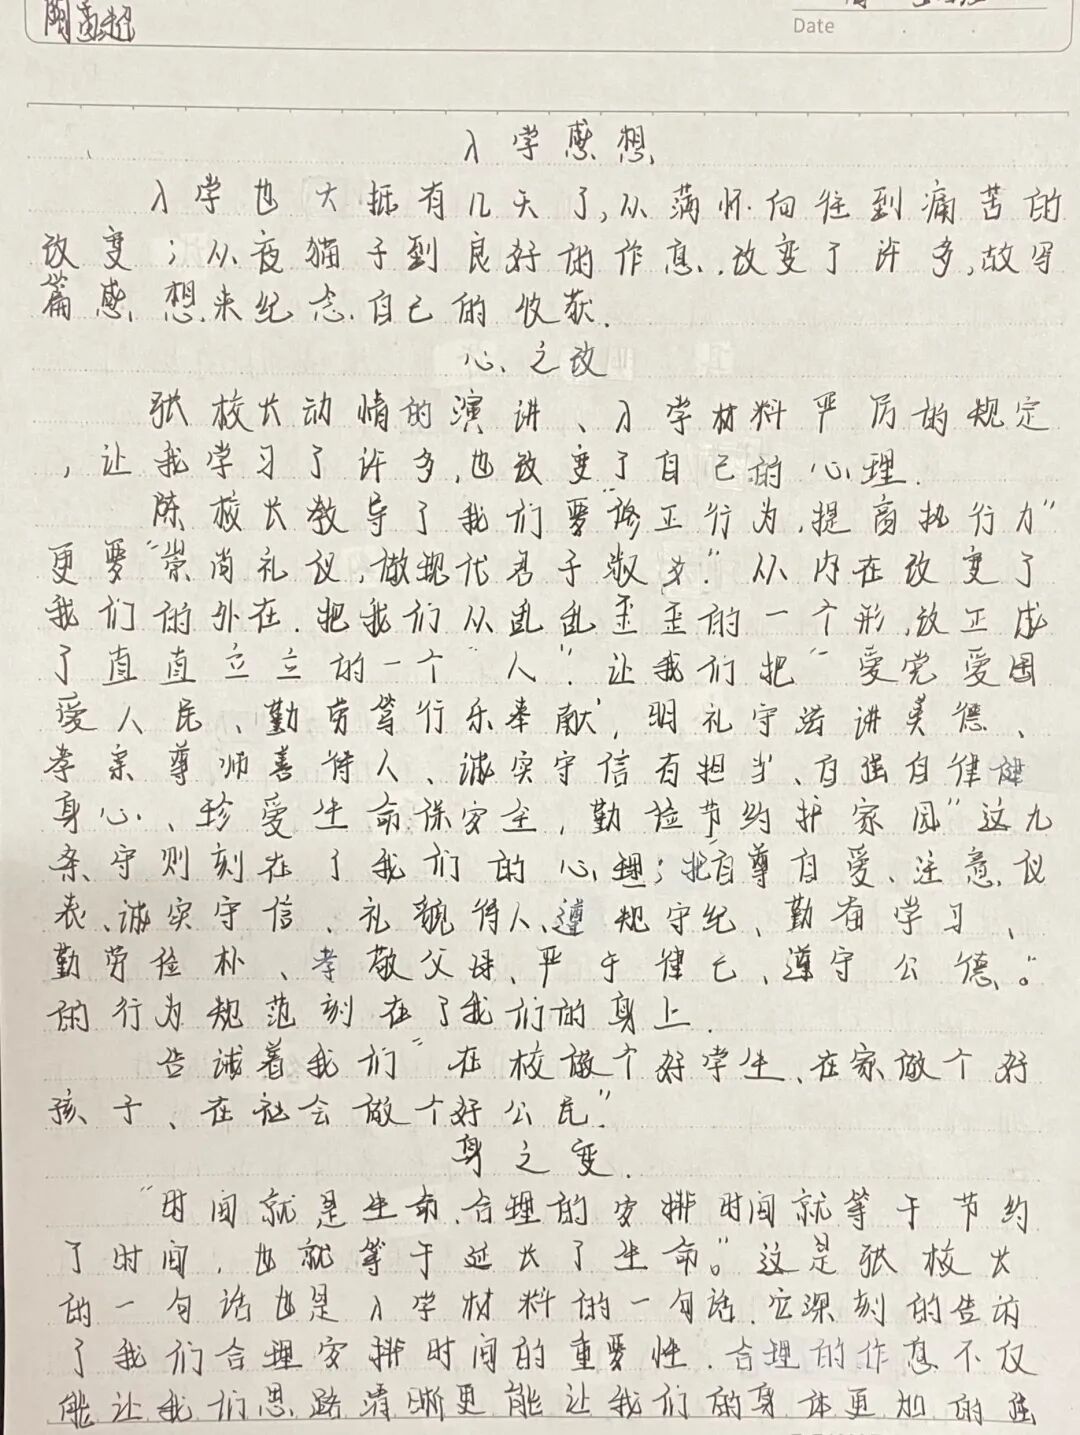 Date
入学感想
入学也大抵有几天了,从满怀向往到痛苦的
改变;从夜猫子到良好的作息.改变了许多,故写
篇感想来纪念自己的收获.
心之改
张校长动情的演讲、入学材料严厉的规定
,让我学习了许多,也改变了自己的心理.
陈校长教导了我们要"修正行为,提高执行力"
更要"崇尚礼议,做现代君子淑女".从内在改变了
我们的外在.把我们从乱乱歪歪的一个形,放正成
了直直立立的一个"人".让我们把"爱党爱国
爱人民、勤劳笃行乐奉献',明礼守法讲美德、
孝亲尊师善待人、诚实守信有担当、自强自律健
身心、珍爱生命保安全,勤俭节约护家园"这九
条守则刻在了我们的心理;把自尊自爱、注意议
表、诚实守信、礼貌待人、遵规守纪、勤奋学习、
勤劳俭朴、孝敬父母、严于律己、遵守公德。"
的行为规范刻在了我们的身上.
告诫着我们"在校做个好学生、在家做个好
孩子、在社会做个好公民".
身之变.
"时间就是生命、合理的安排时间就等于节约
了时间,也就等于延长了生命。"这是张校长
的一句话也是入学材料的一句话.它深刻的告诉
了我们合理安排时间的重要性.合理的作息不仅
能让我们思路清晰更能让我们的身体更加的强